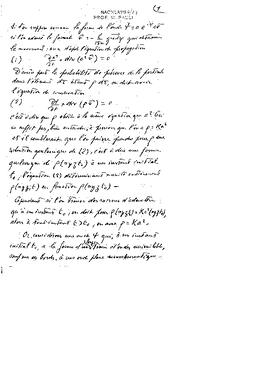 NACHLASS
PROF. W. PAULI
Si l'on suppose connue la forme de l'onde Ψ = a e
et si l'on admet la formule
le mouvement, on a déjà l'équation de propagation
(1) ∂a²/∂t + div (a² v̄) = 0
la probabilité de présence de la particule
dans l'élément dτ étant ρ dτ, on doit avoir
l'équation de conservation
(2) ∂ρ/∂t + div (ρ v̄) = 0
c'est à dire que ρ obéit à la même équation que a². Ceci
ne suffit pas, bien entendu, à prouver que l'on a ρ = Ka²
et il semblerait que l'on puisse prendre pour ρ une
solution quelconque de (2), c'est à dire une forme
quelconque de ρ(x,y,z,t₀) à un instant initial
t₀, l'équation (2) déterminant ensuite entièrement
ρ(x,y,z,t) en fonction ρ(x,y,z,t₀) —
Cependant si l'on trouve des raisons d'admettre
qu'à un instant t₀, on doit poser ρ(x,y,z,t₀) = Ka²(x,y,z,t₀),
alors à tout instant t > t₀, on aura ρ = Ka².
Or, considérons une onde Ψ qui, à un instant
initial t₀, a la forme d'un train d'ondes
une onde plane monochromatique